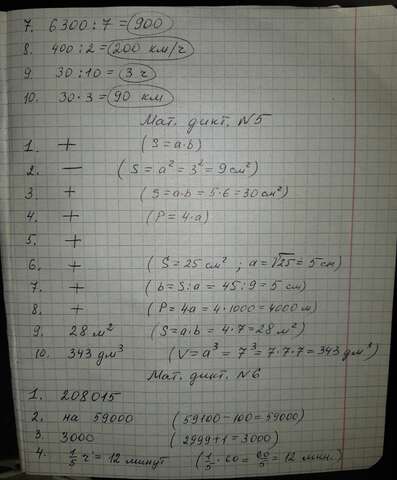 7. 6300 : 7 = 900
8. 400 : 2 = 200 км/ч
9. 30 : 10 = 3 ч
10. 30 · 3 = 90 км
Мат. дикт. №5
1. + (S = a·b)
2. — (S = a² = 3² = 9 см²)
3 + (S = a·b = 5·6 = 30 см²)
4. + (P = 4·a)
5. +
6. + (S = 25 см² ; a = √25 = 5 см)
7. + (b = S : a = 45 : 9 = 5 см)
8. + (P = 4a = 4·1000 = 4000 м)
9. 28 м² (S = a·b = 4·7 = 28 м²)
10. 343 дм³ (V = a³ = 7³ = 7·7·7 = 343 дм³)
Мат. дикт. №6
1. 208015
2. на 59000 (59100 − 100 = 59000)
3. 3000 (2999 + 1 = 3000)
4. 1/5 ч = 12 минут (1/5 · 60 = 60/5 = 12 мин.)